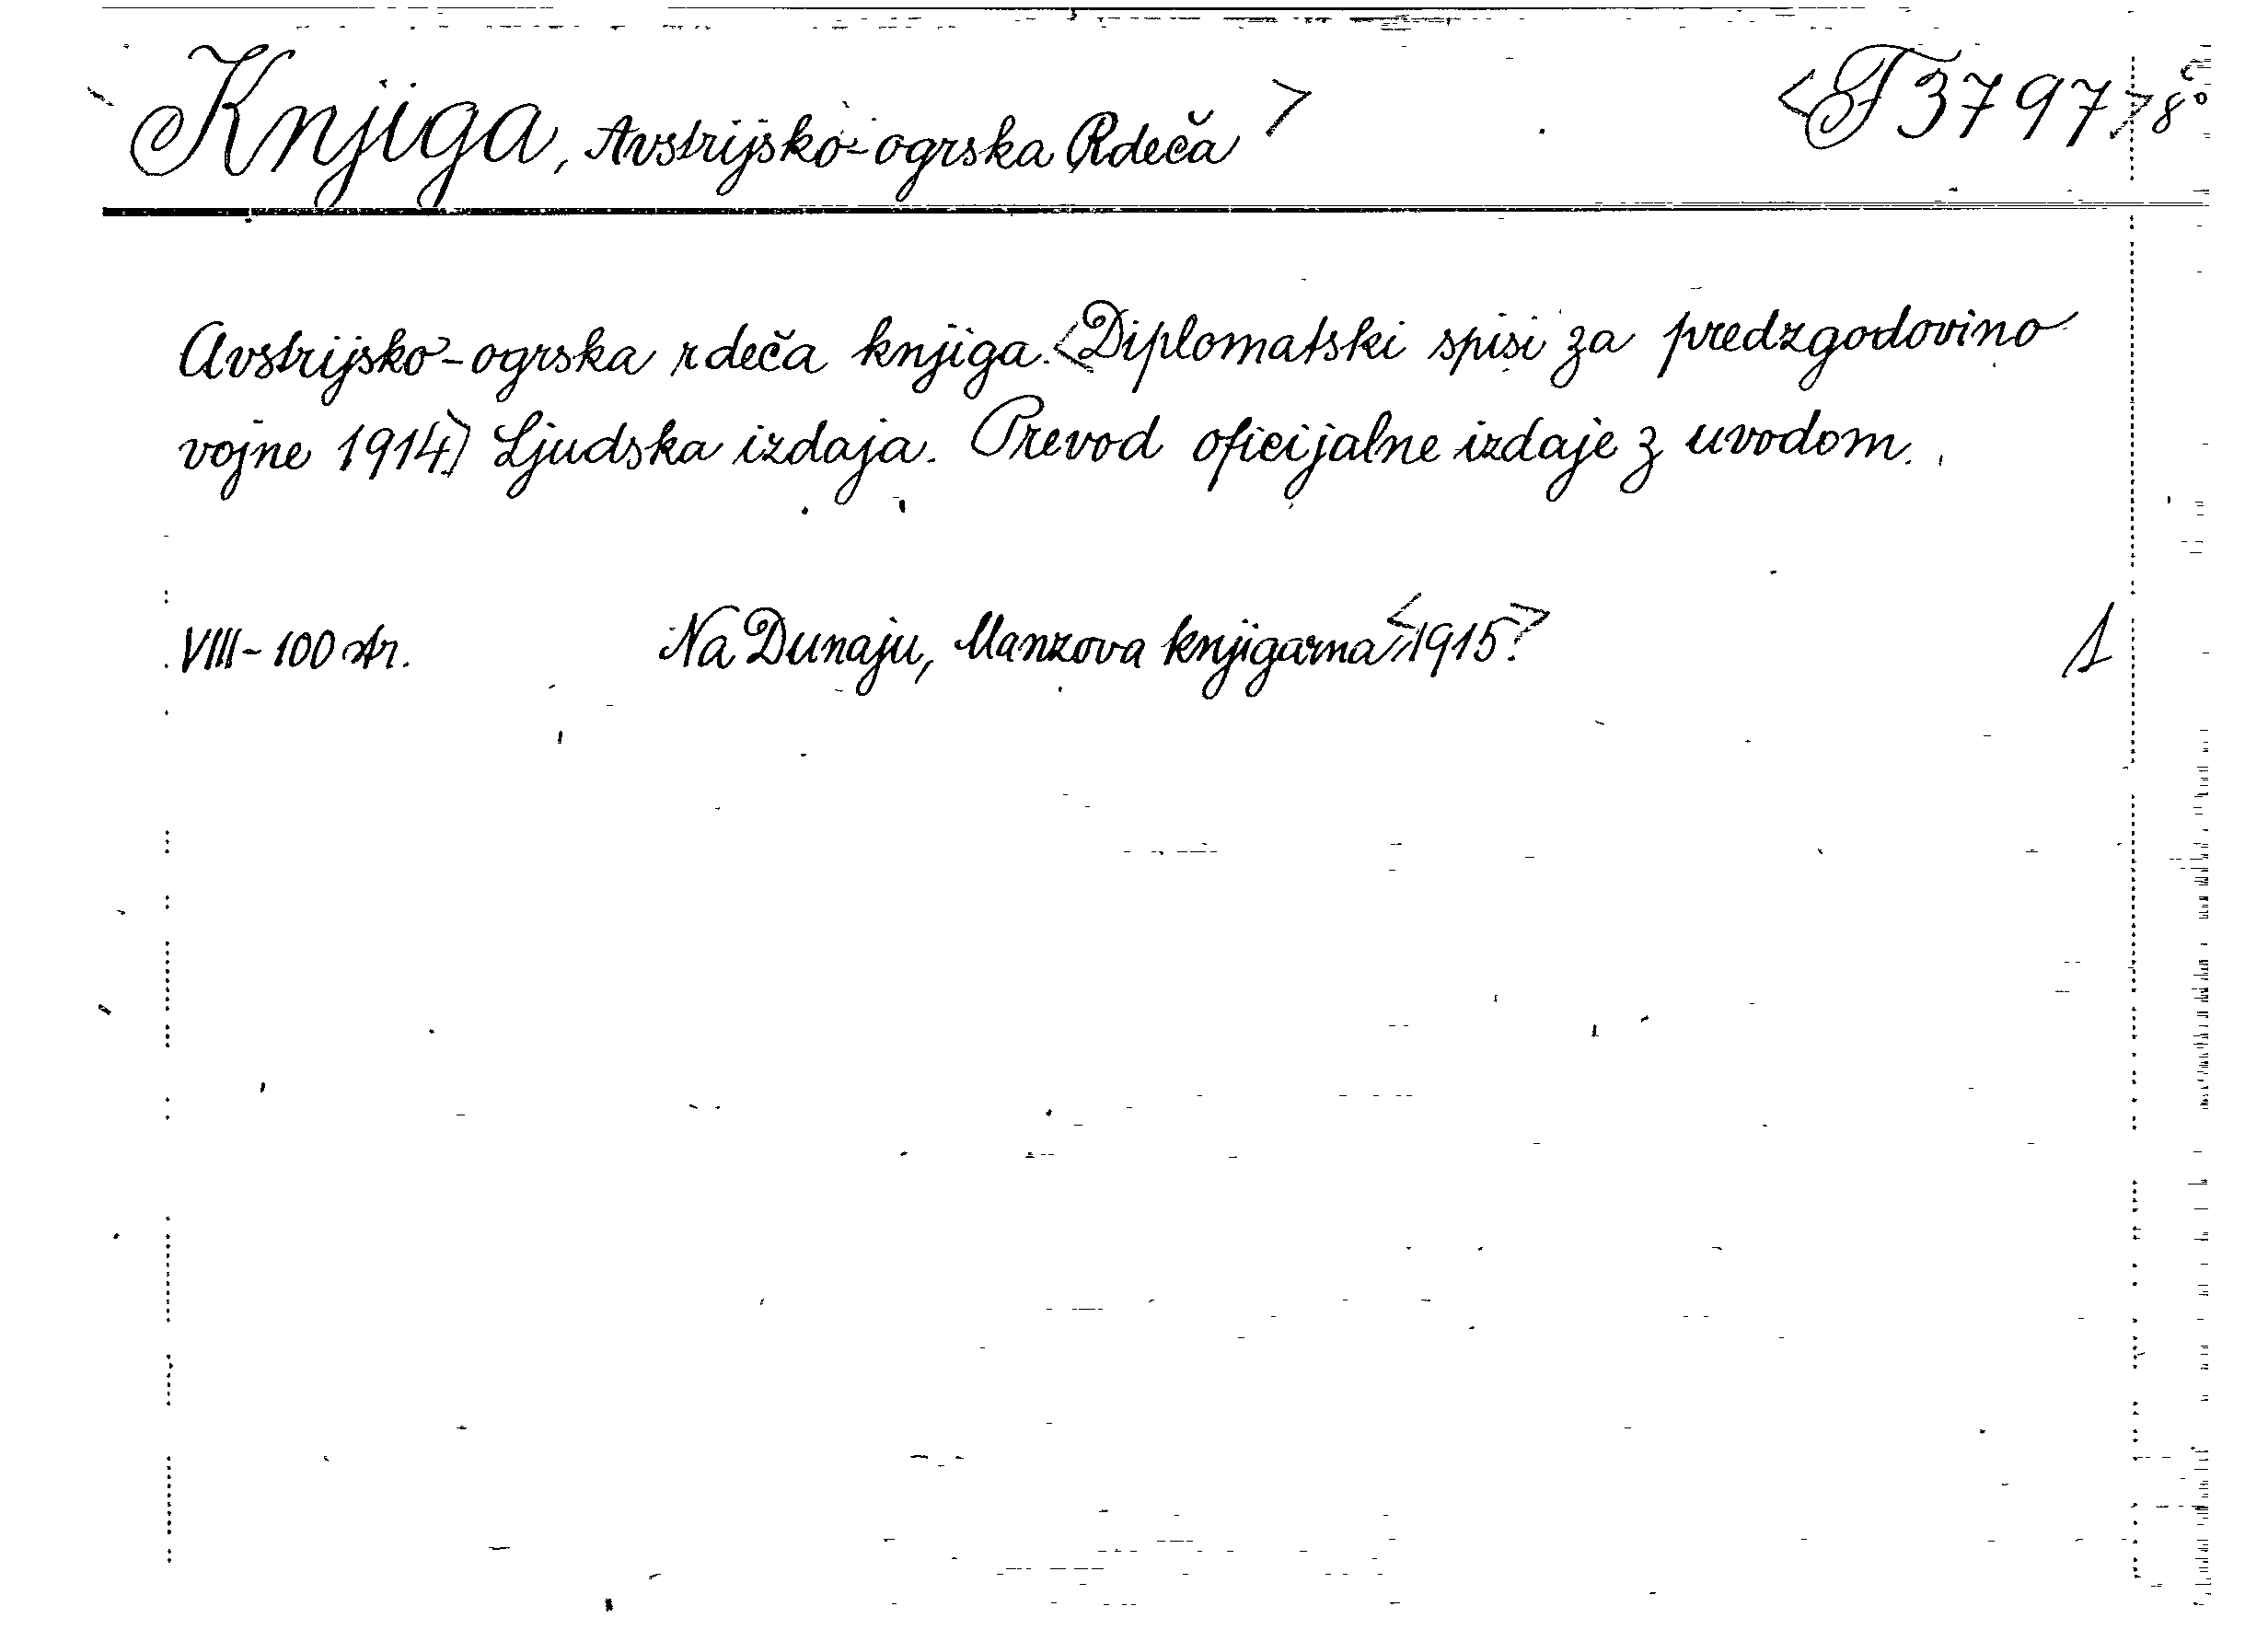 Knjiga, Avstrijsko-ogrska Rdeča > <F 3797> 8°
Avstrijsko-ogrska rdeča knjiga. <Diplomatski spisi za predzgodovino
vojne 1914.> Ljudska izdaja. Prevod oficijalne izdaje z uvodom.
VIII-100 str. Na Dunaju, Manzova knjigarna <1915> 1